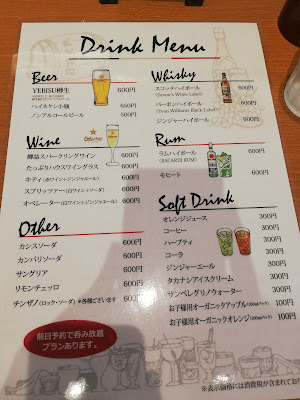 Drink Menu
Beer
YEBISU樽生 600円
ハイネケン小瓶 650円
ノンアルコールビール 500円
Wine
樽詰スパークリングワイン 600円
たっぷりハウスワイングラス 600円
キティ(赤ワイン+ジンジャエール) 600円
スプリッツァー(白ワイン+ソーダ) 600円
オペレーター(白ワイン+ジンジャエール) 600円
Other
カシスソーダ 600円
カンパリソーダ 600円
サングリア 600円
リモンチェッロ 600円
チンザノ(ロック・ソーダ) *各種ございます
前日予約で飲み放題
プランあります。
Whisky
スコッチハイボール 600円
(Dewar's White Label)
バーボンハイボール 600円
(Evan Williams Black Label)
ジンジャーハイボール 600円
Rum
ラムハイボール 600円
(BACARDI RUM)
モヒート 600円
Soft Drink
オレンジジュース 300円
コーヒー 300円
ハーブティ 300円
コーラ 300円
ジンジャーエール 300円
タカナシアイスクリーム 300円
サンペレグリノウォーター 300円
お子様用オーガニックアップル 100円
お子様用オーガニックオレンジ 100円
※表示価格には消費税が含まれており